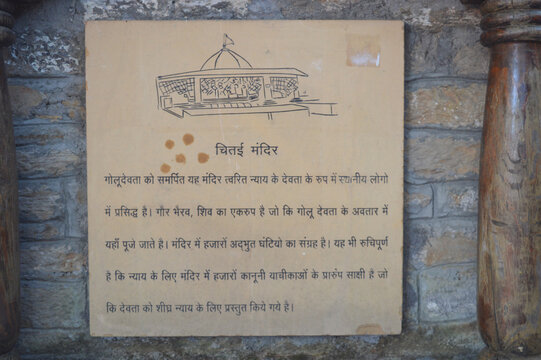 चितई मंदिर
गोलूदेवता को समर्पित यह मंदिर त्वरित न्याय के देवता के रुप में स्थानीय लोगो
में प्रसिद्ध है। गौर भैरव, शिव का एकरुप है जो कि गोलू देवता के अवतार में
यहाँ पूजे जाते है। मंदिर में हजारों अद्भुत घंटियो का संग्रह है। यह भी रुचिपूर्ण
है कि न्याय के लिए मंदिर में हजारो कानूनी याचीकाओं के प्रारुप साक्षी है जो
कि देवता को शीघ्र न्याय के लिए प्रस्तुत किये गये है।